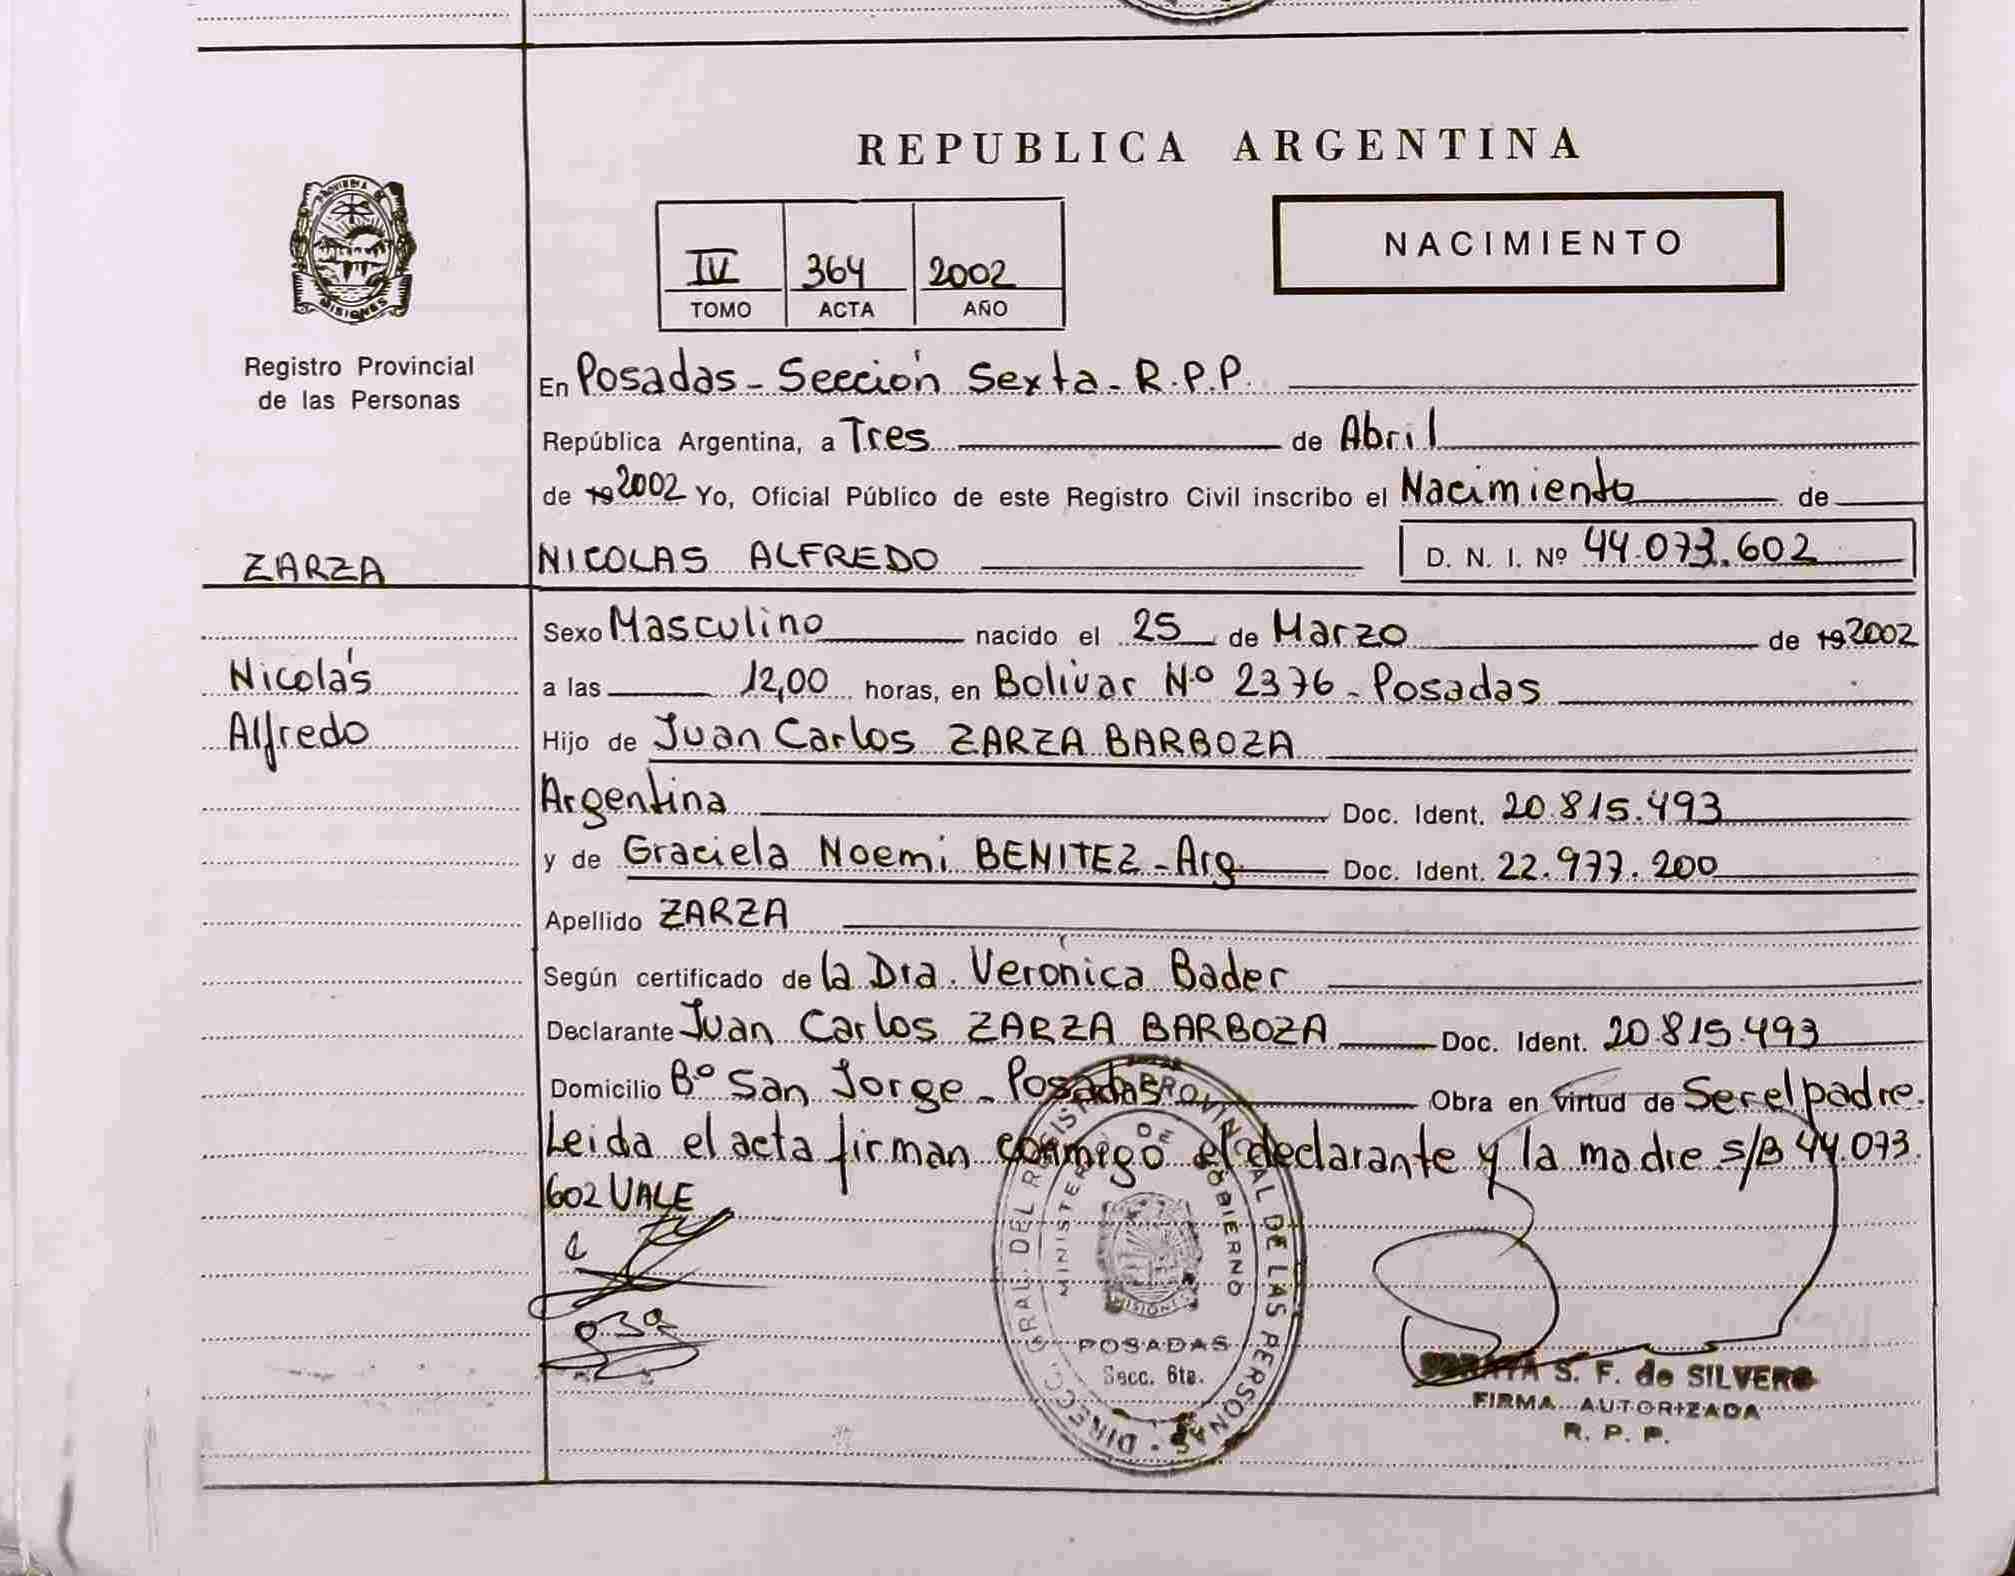 REPUBLICA ARGENTINA
PROVINCIA DE
MISIONES
IV 364 2002
TOMO ACTA AÑO
NACIMIENTO
Registro Provincial
de las Personas
En Posadas - Sección Sexta - R.P.P.
República Argentina, a Tres de Abril
de 19 2002 Yo, Oficial Público de este Registro Civil inscribo el Nacimiento de
ZARZA
NICOLAS ALFREDO D. N. I. Nº 44.073.602
Sexo Masculino nacido el 25 de Marzo de 19 2002
Nicolás
a las 12,00 horas, en Bolívar Nº 2376 - Posadas
Alfredo
Hijo de Juan Carlos ZARZA BARBOZA
Argentina Doc. Ident. 20.815.493
y de Graciela Noemi BENITEZ - Arg. Doc. Ident. 22.977.200
Apellido ZARZA
Según certificado de la Dra. Verónica Bader
Declarante Juan Carlos ZARZA BARBOZA Doc. Ident. 20.815.493
Domicilio Bº San Jorge - Posadas Obra en virtud de Ser el padre.
Leida el acta firman conmigo el declarante y la madre s/B 44.073.
602 VALE
DIRECC. GRAL. DEL REGISTRO PROVINCIAL DE LAS PERSONAS
MINISTERIO DE GOBIERNO
MISIONES
POSADAS
Secc. 6ta.
S. F. de SILVERO
FIRMA AUTORIZADA
R. P. P.